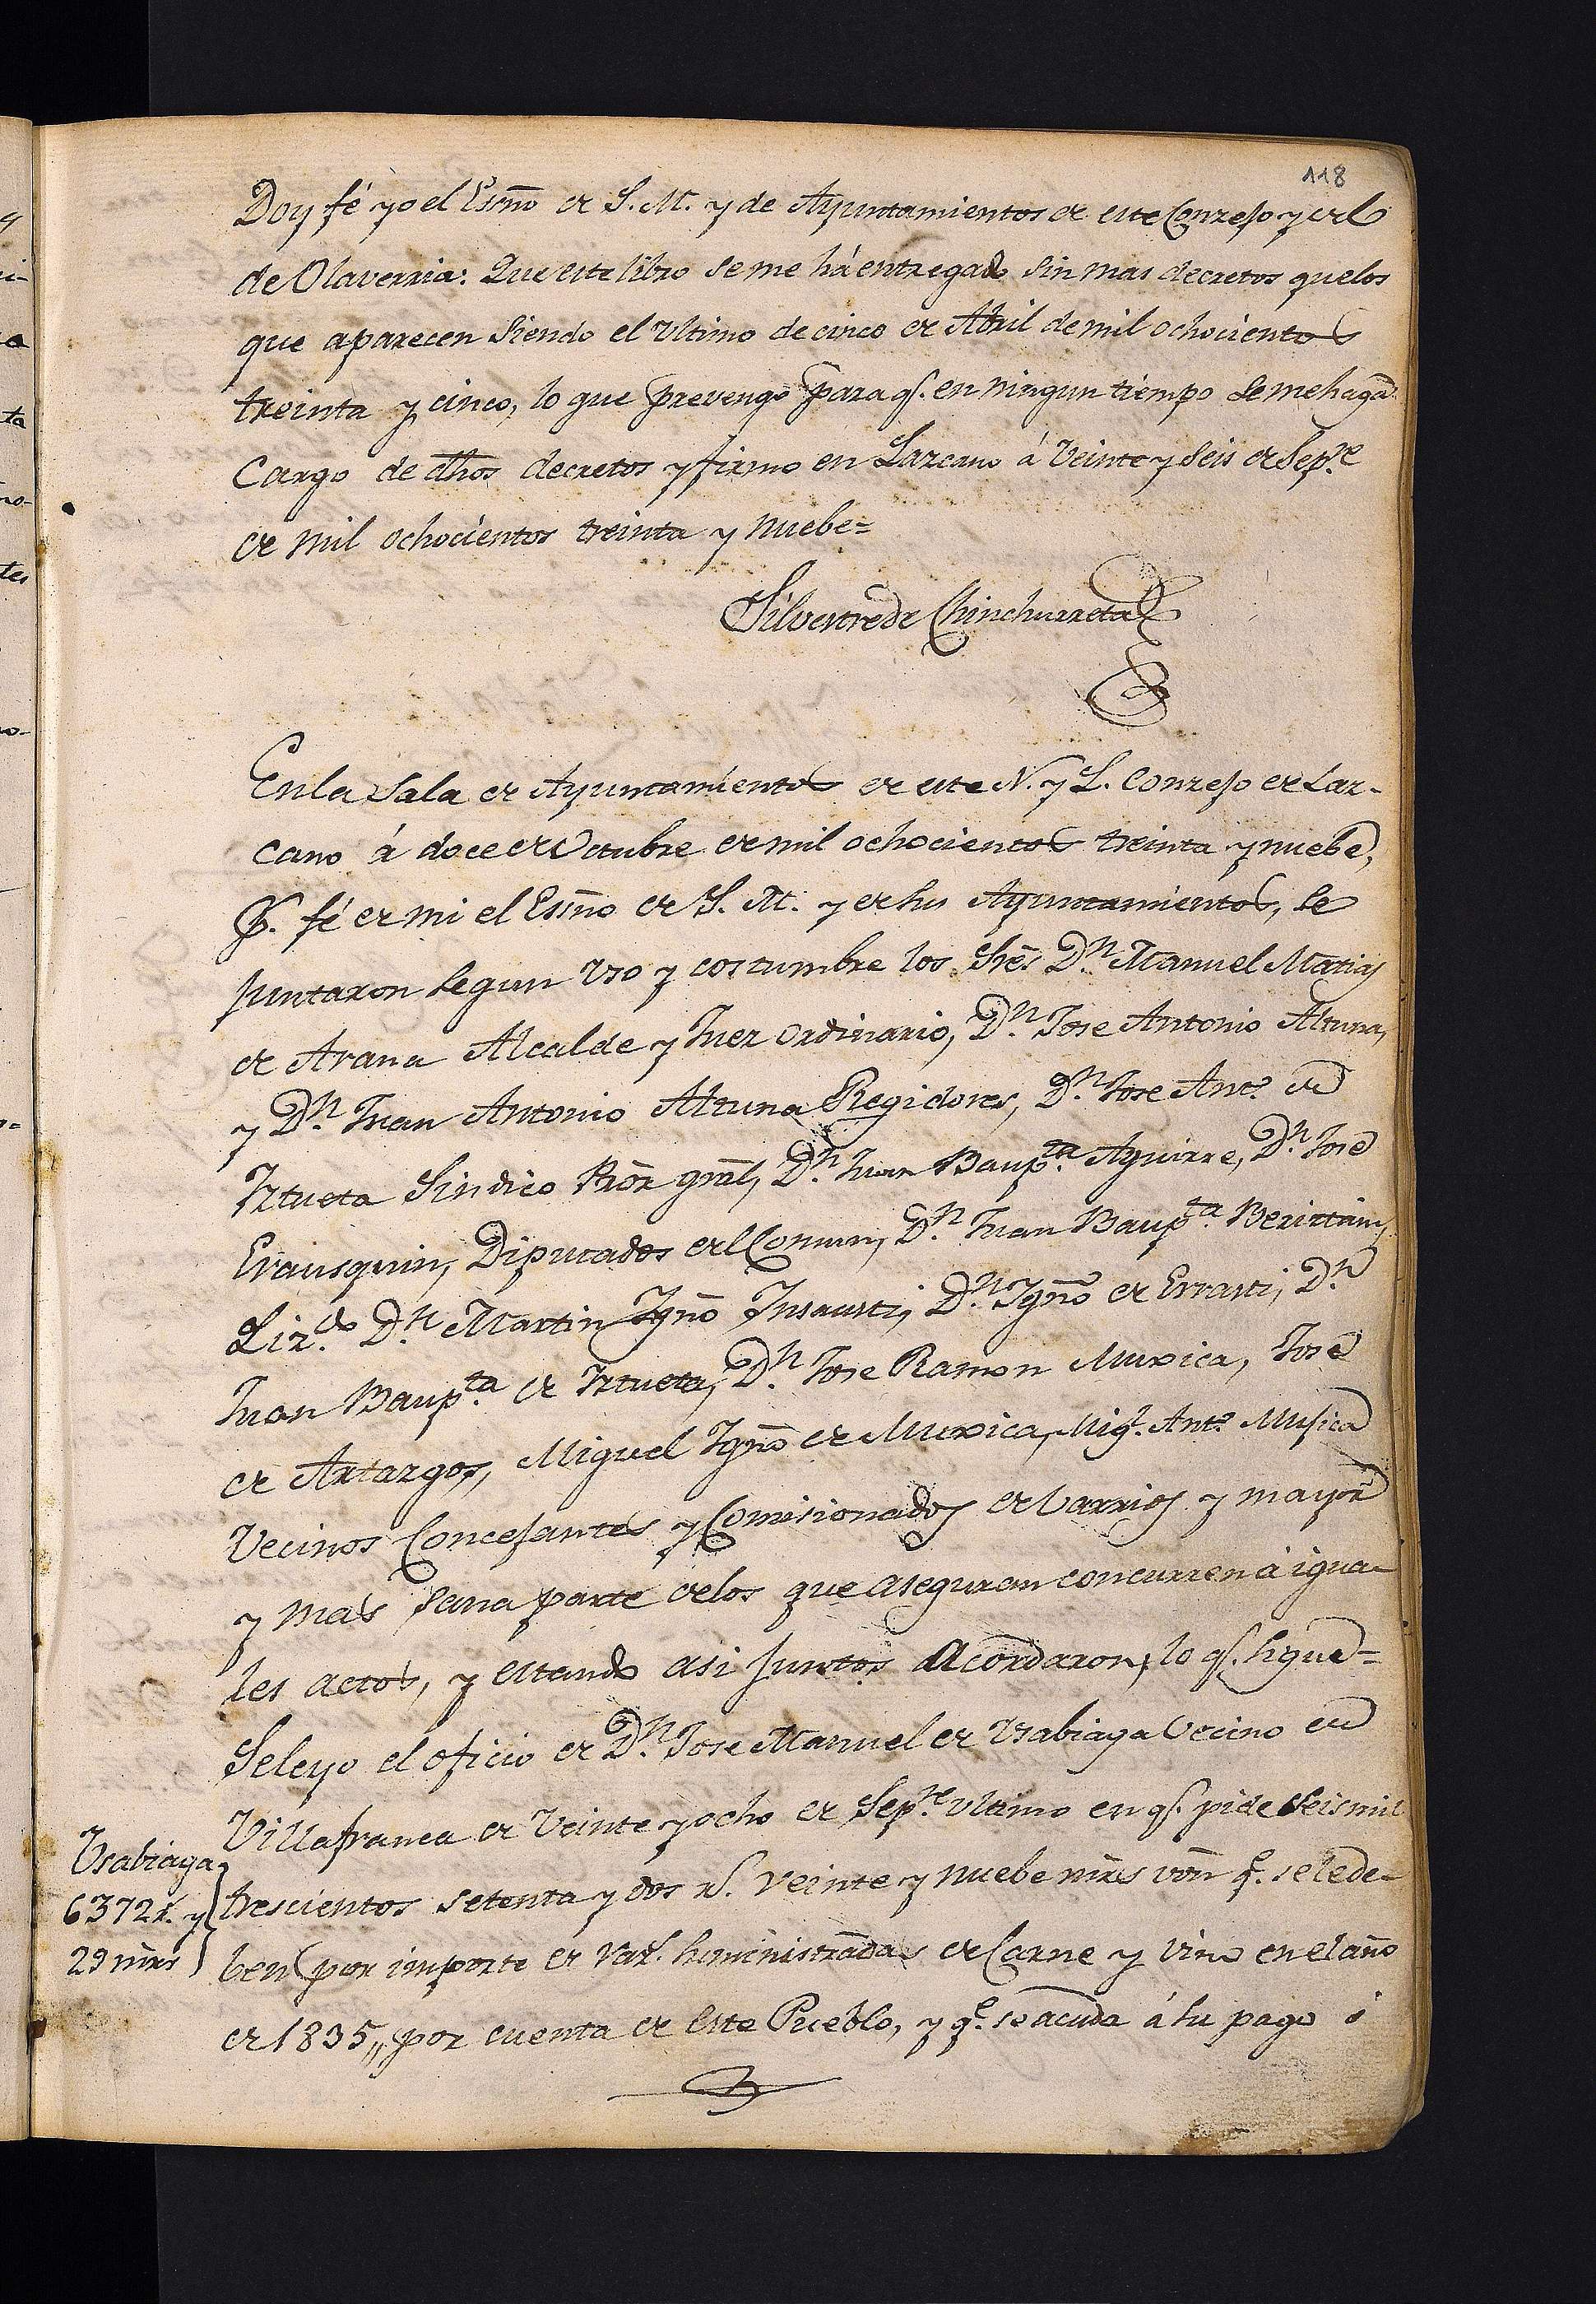 118
Doy fé yo el Esc̃no de S. M. y de Ayuntamientos de este Conzejo y del
de Olaverria: Que este libro se me há entregado sin mas decretos que los
que aparecen siendo el ultimo de cinco de Abril de mil ochocientos
treinta y cinco, lo que prevengo para q.e en ningun tiempo se me haga
Cargo de dhos decretos y firmo en Lazcano á veinte y seis de Sep.re
de mil ochocientos treinta y nuebe=
Silvestre de Chinchurreta
En la Sala de Ayuntamientos de este N. y L. Conzejo de Laz-
cano á doce de Octubre de mil ochocientos treinta y nuebe,
P. fé de mi el Esc̃no de S. M. y de sus Ayuntamientos, se
juntaron segun uso y costumbre los Sres D.n Manuel Matias
de Arana Alcalde y Juez ordinario, D.n Jose Antonio Altuna,
y D.n Juan Antonio Altuna Regidores, D.n Jose Ant.o de
Iztueta Sindico Pr̃or gr̃al, D.n Juan Baup.ta Aguirre, D.n José
Erausquin, Diputados del Comun, D.n Juan Baup.ta Beriztain,
Liz.do D.n Martin Ygñ̃o Insausti, D.n Ygñ̃o de Errasti, D.n
Juan Baup.ta de Iztueta, D.n Jose Ramon Muxica, José
de Artargos, Miguel Ygñ̃o de Muxica, Mig.l Ant.o Mujica
Vecinos Concejantes y Comisionados de barrios y mayor
y mas sana parte de los que aseguran concurren á igua-
les actos, y estando asi juntos acordaron, lo q.e sigue=
Se leyo el oficio de D.n Jose Manuel de Usabiaga Vecino de
Villafranca de Veinte y ocho de Sep.re ultimo en q.e pide seis mil
trescientos setenta y dos r.s veinte y nuebe mrs von q.e se le de-
ben por importe de rax.s suministradas de Carne y vino en el año
de 1835,, por cuenta de este Pueblo, y q.e se acuda á su pago ó
Usabiaga
6372 r. y
29 mrs